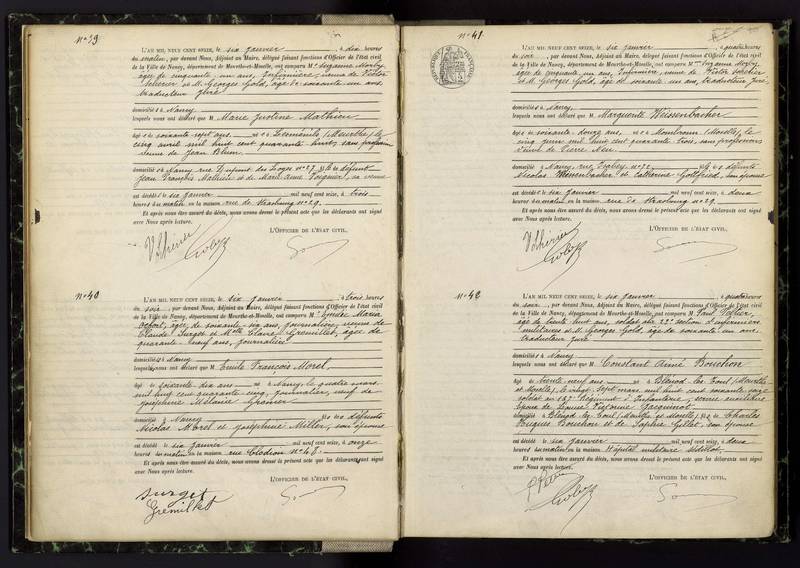 N° 39
L'AN MIL NEUF CENT SEIZE, le six janvier, à dix heures
du matin, par devant Nous, Adjoint au Maire, délégué faisant fonctions d'Officier de l'état civil
de la Ville de Nancy, département de Meurthe-et-Moselle, ont comparu Me Suzanne Morby,
âgée de cinquante un ans, Infirmière, veuve de Victor
et M. Georges Gold, âgé de soixante un ans,
traducteur juré
domiciliés à Nancy
lesquels nous ont déclaré que M Marie Justine Mathieu
âgée de soixante sept ans né à Lesménils (Meurthe) le
cinq avril mil huit cent quarante huit, sans profession
veuve de Jean Blum
domiciliée à Nancy rue Dupont des Loges n° 27, fille de défunts
Jean François Mathieu et de Marie Anne, sa veuve
est décédée le six janvier mil neuf cent seize, à trois
heures du matin en la maison rue de Strasbourg n° 29.
Et après nous être assuré du décès, nous avons dressé le présent acte que les déclarants ont signé
avec Nous après lecture.
L'OFFICIER DE L'ÉTAT CIVIL,
N° 40
L'AN MIL NEUF CENT SEIZE, le six janvier, à trois heures
du soir, par devant Nous, Adjoint au Maire, délégué faisant fonctions d'Officier de l'état civil
de la Ville de Nancy, département de Meurthe-et-Moselle, ont comparu Me Maria
âgée de soixante six ans, journalière, veuve de
Claude Surget et Mme Grémillet, âgée de
quarante neuf ans, journalière
domiciliées à Nancy
lesquels nous ont déclaré que M Emile François Morel
âgé de soixante dix ans né à Nancy, le quatre mars
mil huit cent quarante cinq, journalier, veuf de
Joséphine Mélanie Grosier
domicilié à Nancy fils de défunts
Nicolas Morel et Joséphine Miller, son épouse
est décédé le six janvier mil neuf cent seize, à onze
heures du matin en la maison rue Clodion n° 48.
Et après nous être assuré du décès, nous avons dressé le présent acte que les déclarants ont signé
avec Nous après lecture.
L'OFFICIER DE L'ÉTAT CIVIL,
Surget
Grémillet
N° 41
L'AN MIL NEUF CENT SEIZE, le six janvier, à quatre heures
du soir, par devant Nous, Adjoint au Maire, délégué faisant fonctions d'Officier de l'état civil
de la Ville de Nancy, département de Meurthe-et-Moselle, ont comparu Me Suzanne Morby,
âgée de cinquante un ans, Infirmière, veuve de Victor
et M. Georges Gold, âgé de soixante un ans, traducteur juré
domiciliés à Nancy
lesquels nous ont déclaré que M Marguerite Weissenbacher
âgée de soixante douze ans né à Montbronn (Moselle), le
cinq juin mil huit cent quarante trois, sans profession
veuve de Pierre Neu
domiciliée à Nancy, rue Isabey n° 72 fille de défunts
Nicolas Weissenbacher et Catherine Gottfried, son épouse
est décédée le six janvier mil neuf cent seize, à deux
heures du matin en la maison rue de Strasbourg n° 29.
Et après nous être assuré du décès, nous avons dressé le présent acte que les déclarants ont signé
avec Nous après lecture.
L'OFFICIER DE L'ÉTAT CIVIL,
N° 42
L'AN MIL NEUF CENT SEIZE, le six janvier, à quatre heures
du soir, par devant Nous, Adjoint au Maire, délégué faisant fonctions d'Officier de l'état civil
de la Ville de Nancy, département de Meurthe-et-Moselle, ont comparu M. Paul
âgé de trente huit ans, soldat à la 23e section d'infirmiers
militaires et M. Georges Gold, âgé de soixante un ans,
traducteur juré
domiciliés à Nancy
lesquels nous ont déclaré que M Constant Aimé Bouchon
âgé de trente neuf ans né à Blénod-les-Toul (Meurthe
et Moselle), le vingt sept mars mil huit cent soixante seize
soldat au Régiment d'Infanterie,
époux de Jeanne Victorine Jacquinot
domicilié à Blénod les Toul (Meurthe et Moselle), fils de Charles
Bouchon et de Sophie Gillet, son épouse
est décédé le six janvier mil neuf cent seize, à deux
heures du matin en la maison Hôpital militaire Sédillot.
Et après nous être assuré du décès, nous avons dressé le présent acte que les déclarants ont signé
avec Nous après lecture.
L'OFFICIER DE L'ÉTAT CIVIL,